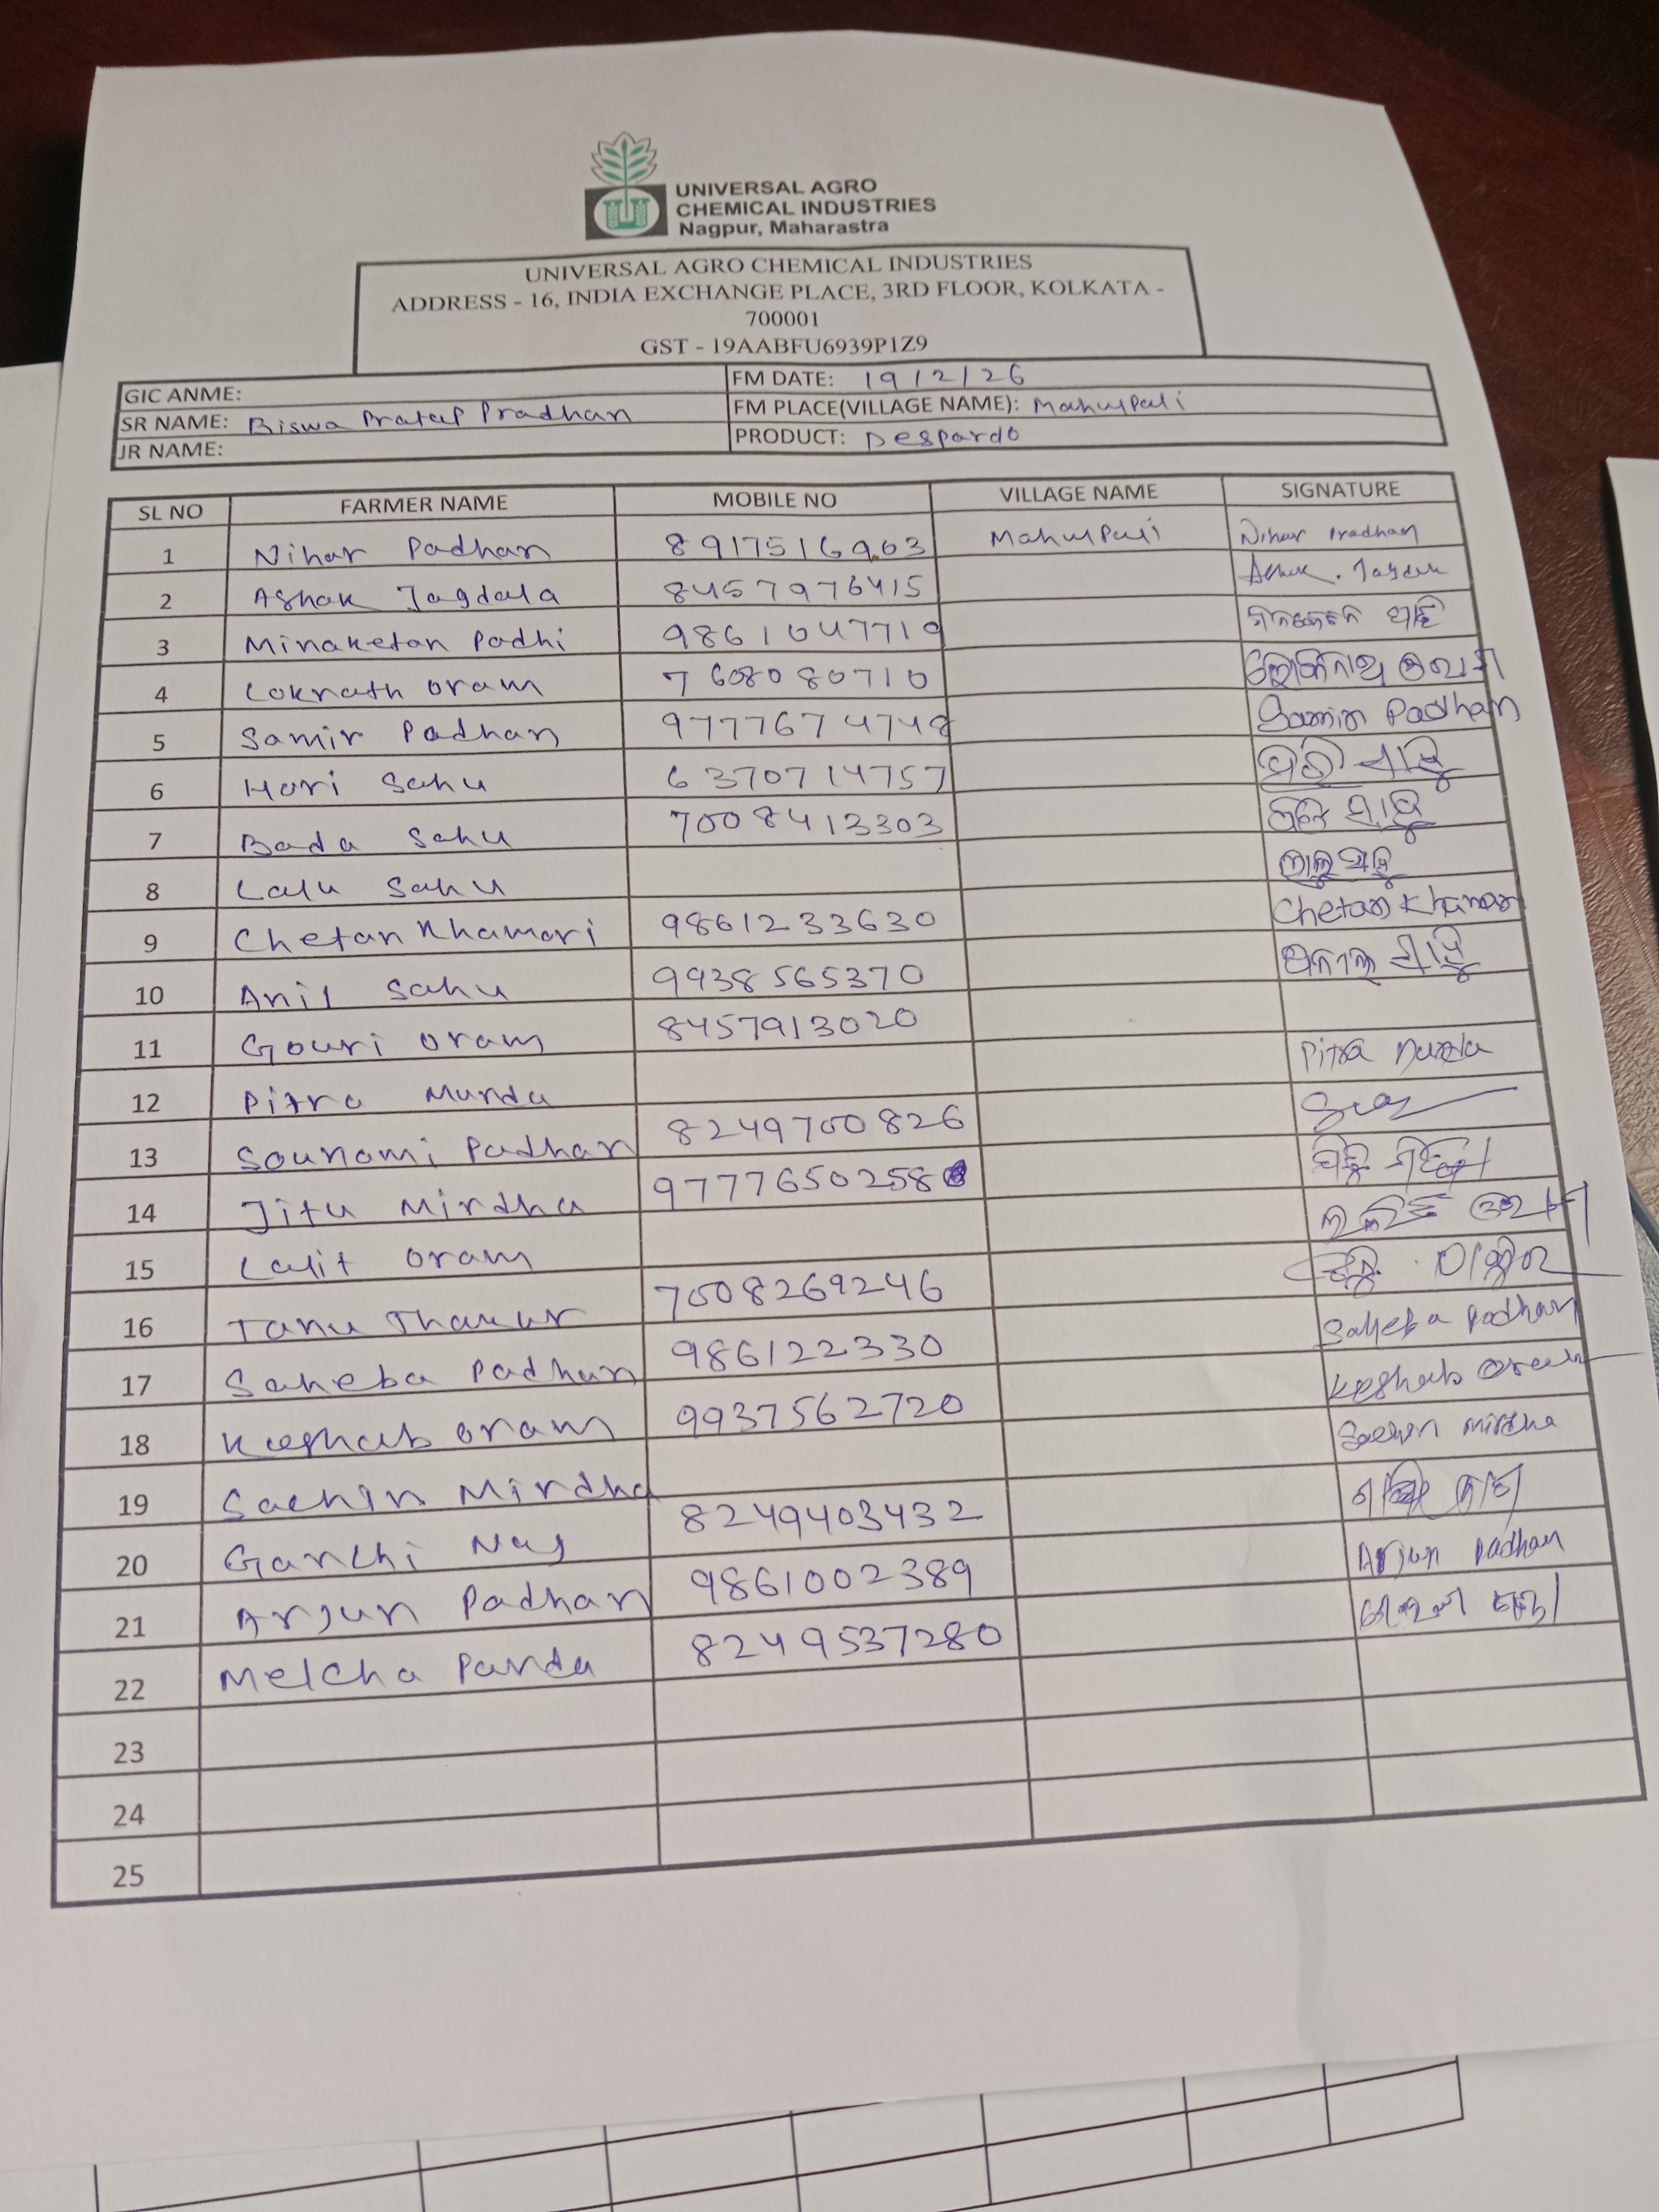 UNIVERSAL AGRO
CHEMICAL INDUSTRIES
Nagpur, Maharastra
UNIVERSAL AGRO CHEMICAL INDUSTRIES
ADDRESS - 16, INDIA EXCHANGE PLACE, 3RD FLOOR, KOLKATA -
700001
GST - 19AABFU6939P1Z9
GIC ANME: FM DATE: 19/2/26
SR NAME: Biswa Pratap Pradhan FM PLACE(VILLAGE NAME): Mahulpali
JR NAME: PRODUCT: Despardo
SL NO FARMER NAME MOBILE NO VILLAGE NAME SIGNATURE
1 Nihar Padhan 8917516963 Mahulpali Nihar Pradhan
2 Ashok Jagdala 8457976415 Ashok
3 Minaketan Padhi 9861047719
4 Loknath Oram 7608080710
5 Samir Padhan 9777674748 Samir Padhan
6 Hari Sahu 6370714757 ହରି ସାହୁ
7 Bada Sahu 7008413303 ସାହୁ
8 Lalu Sahu ଲାଲୁ ସାହୁ
9 Chetan Khamari 9861233630 Chetan Khamari
10 Anil Sahu 9938565370 ସାହୁ
11 Gouri Oram 8457913020
12 Pitra Munda Pitra Munda
13 Sounami Padhan 8249700826
14 Jitu Mirdha 9777650258
15 Lalit Oram
16 Tanu Thakur 7008269246
17 Saheba Padhan 986122330 Saheba Padhan
18 Keshab Oram 9937562720 Keshab Oram
19 Sachin Mirdha Sachin Mirdha
20 Gandhi Nag 8249403432
21 Arjun Padhan 9861002389 Arjun Padhan
22 Melcha Panda 8249537280
23
24
25